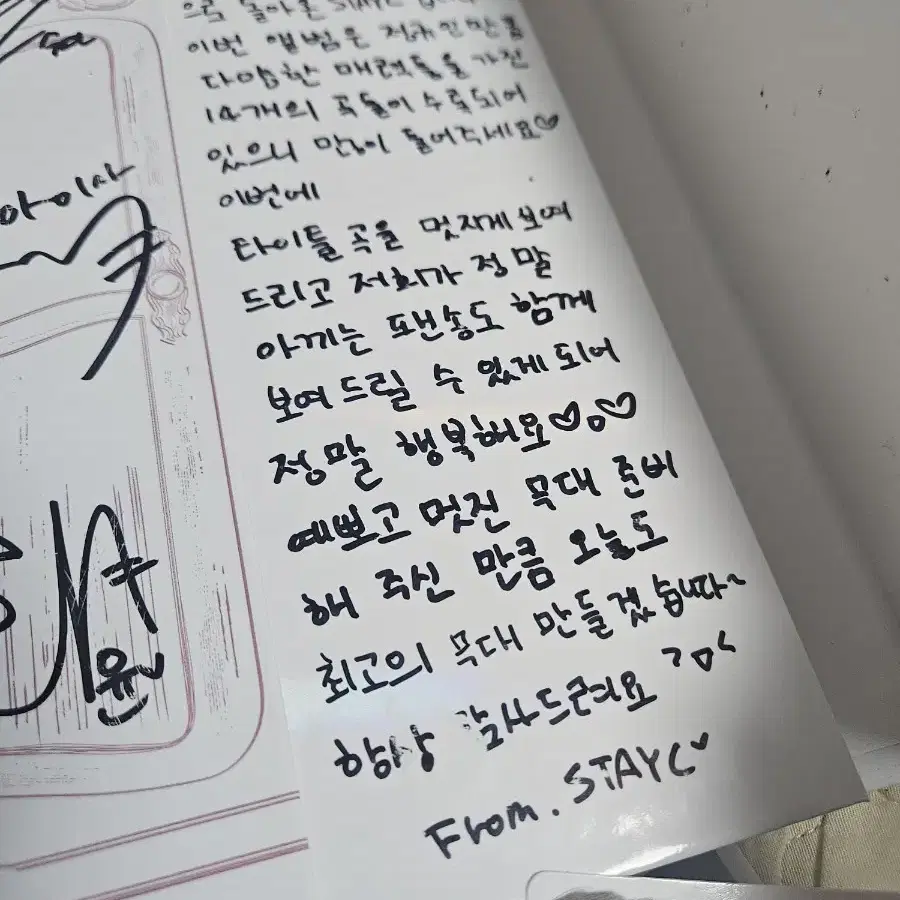 으로 돌아온 STAYC
이번 앨범은 정규인만큼
다양한 매력들을 가진
14개의 곡들이 수록되어
있으니 많이 들어주세요♡
이번에
타이틀 곡을 멋지게 보여
드리고 저희가 정말
아끼는 팬송도 함께
보여드릴 수 있게 되어
정말 행복해요♡。♡
예쁘고 멋진 무대 준비
해 주신 만큼 오늘도
최고의 무대 만들겠습니다~
항상 감사드려요 >ㅁ<
From. STAYC♡
아이사
윤